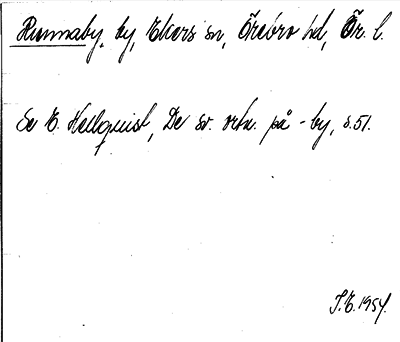 Runnaby, by, Ekers sn, Örebro hd, Ör. l.
Se E. Hellquist, De sv. ortn. på -by, s. 51.
J.E. 1954.